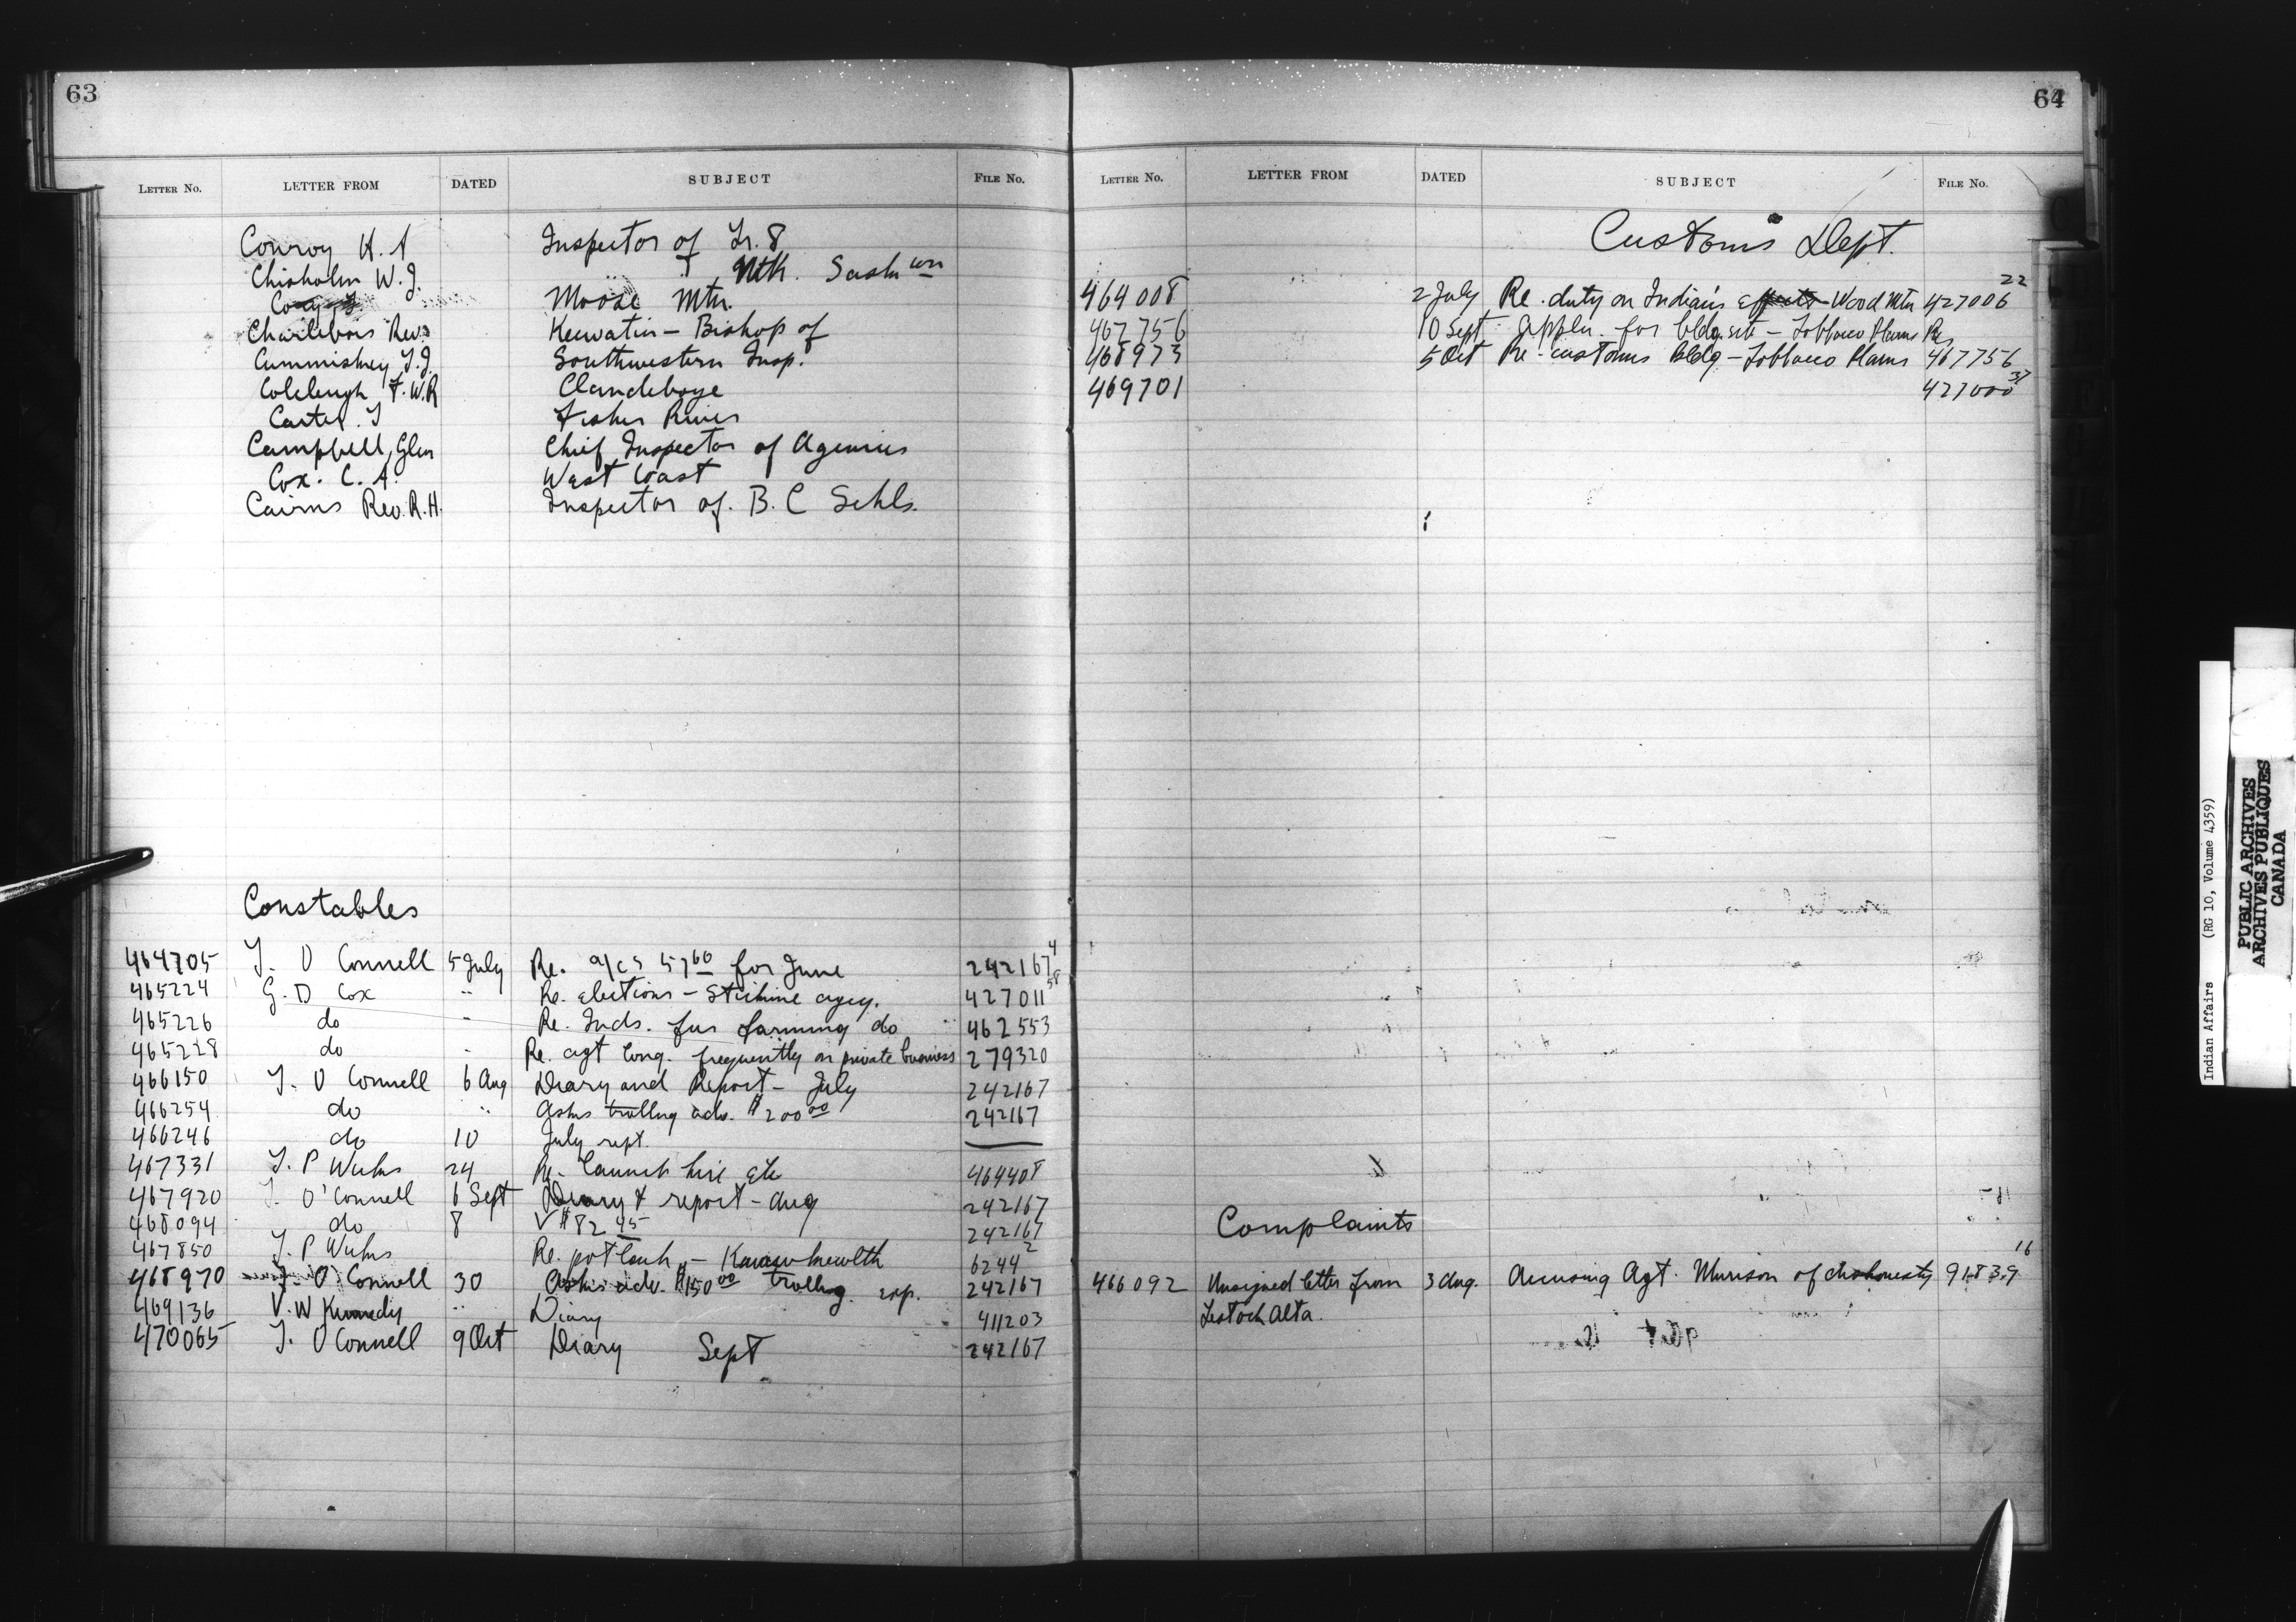 63
LETTER NO. LETTER FROM DATED SUBJECT FILE NO.
Conroy H. A Inspector of Tr. 8
Chisholm W. J. " " Nth. Saskwn
Moose Mtn.
Charlebois Rev. Keewatin – Bishop of
Cummiskey J. J. Southwestern Insp.
Colcleugh F. W. R Clandeboye
Carter. T Fisher River
Campbell, Glen Chief Inspector of Agencies
Cox. C. A. West Coast
Cairns Rev. R. H. Inspector of B. C Schls.
Constables
464705 T. O Connell 5 July Re. a/cs 57 60 for June 242167 4
465224 G. D Cox " Re. elections – Stickine agcy. 427011 58
465226 do " Re. Inds. fur farming do 462553
465228 do " Re. agt long. frequently on private business 279320
466150 T. O Connell 6 Aug Diary and Report – July 242167
466254 do " Asks trvllng adv. $200 00 242167
466246 do 10 July rept.
467331 T. P 24 Re. Launch hire etc 464408
467920 T. O'Connell 6 Sept Diary & report – Aug 242167
468094 do 8 V $82 45 242167
467850 T. P Re. potlach – 6244 2
468970 T. O Connell 30 Asks adv. $150 00 trvllng. exp. 242167
469136 V. W Kennedy " Diary 411203
470065 T. O Connell 9 Oct Diary Sept 242167
64
LETTER NO. LETTER FROM DATED SUBJECT FILE NO.
Customs Dept.
464008 2 July Re. duty on Indian's effects – Wood Mtn 427006 22
467756 10 Sept Appln. for bldg. site – Tobbacco Plains Re
468973 5 Oct Re – customs bldg – Tobbacco Plains 467756
469701 427000 37
Complaints
466092 Unsigned letter from 3 Aug. Accusing Agt. Murison of dishonesty 91839 16
Lestock Alta.
Indian Affairs (RG 10, Volume 4359)
PUBLIC ARCHIVES
ARCHIVES PUBLIQUES
CANADA